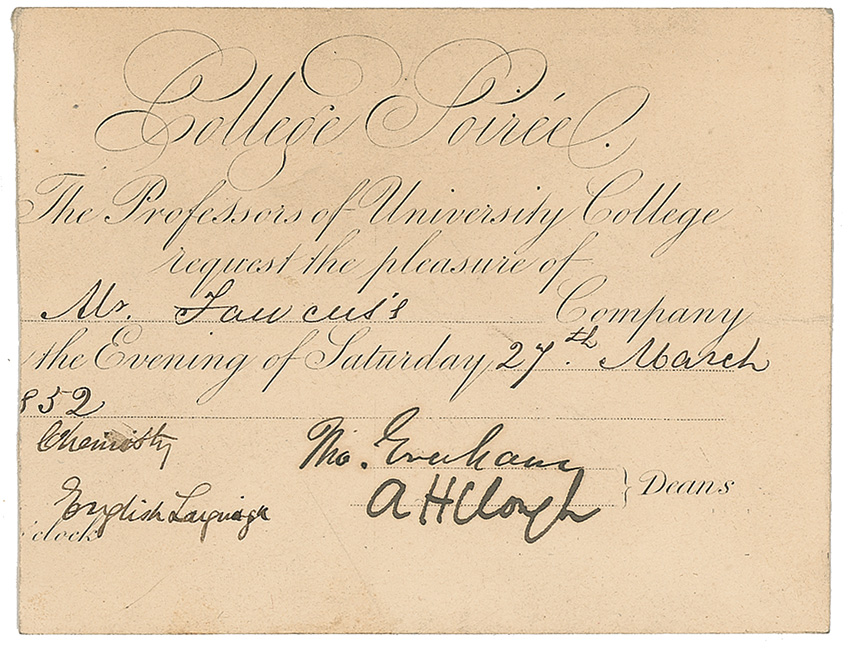 College Soirée.
The Professors of University College
request the pleasure of
Mr. Fawcus's Company
the Evening of Saturday, 27.th March
852
Chemistry
Tho.
A H Clough } Deans
English Language
'clock